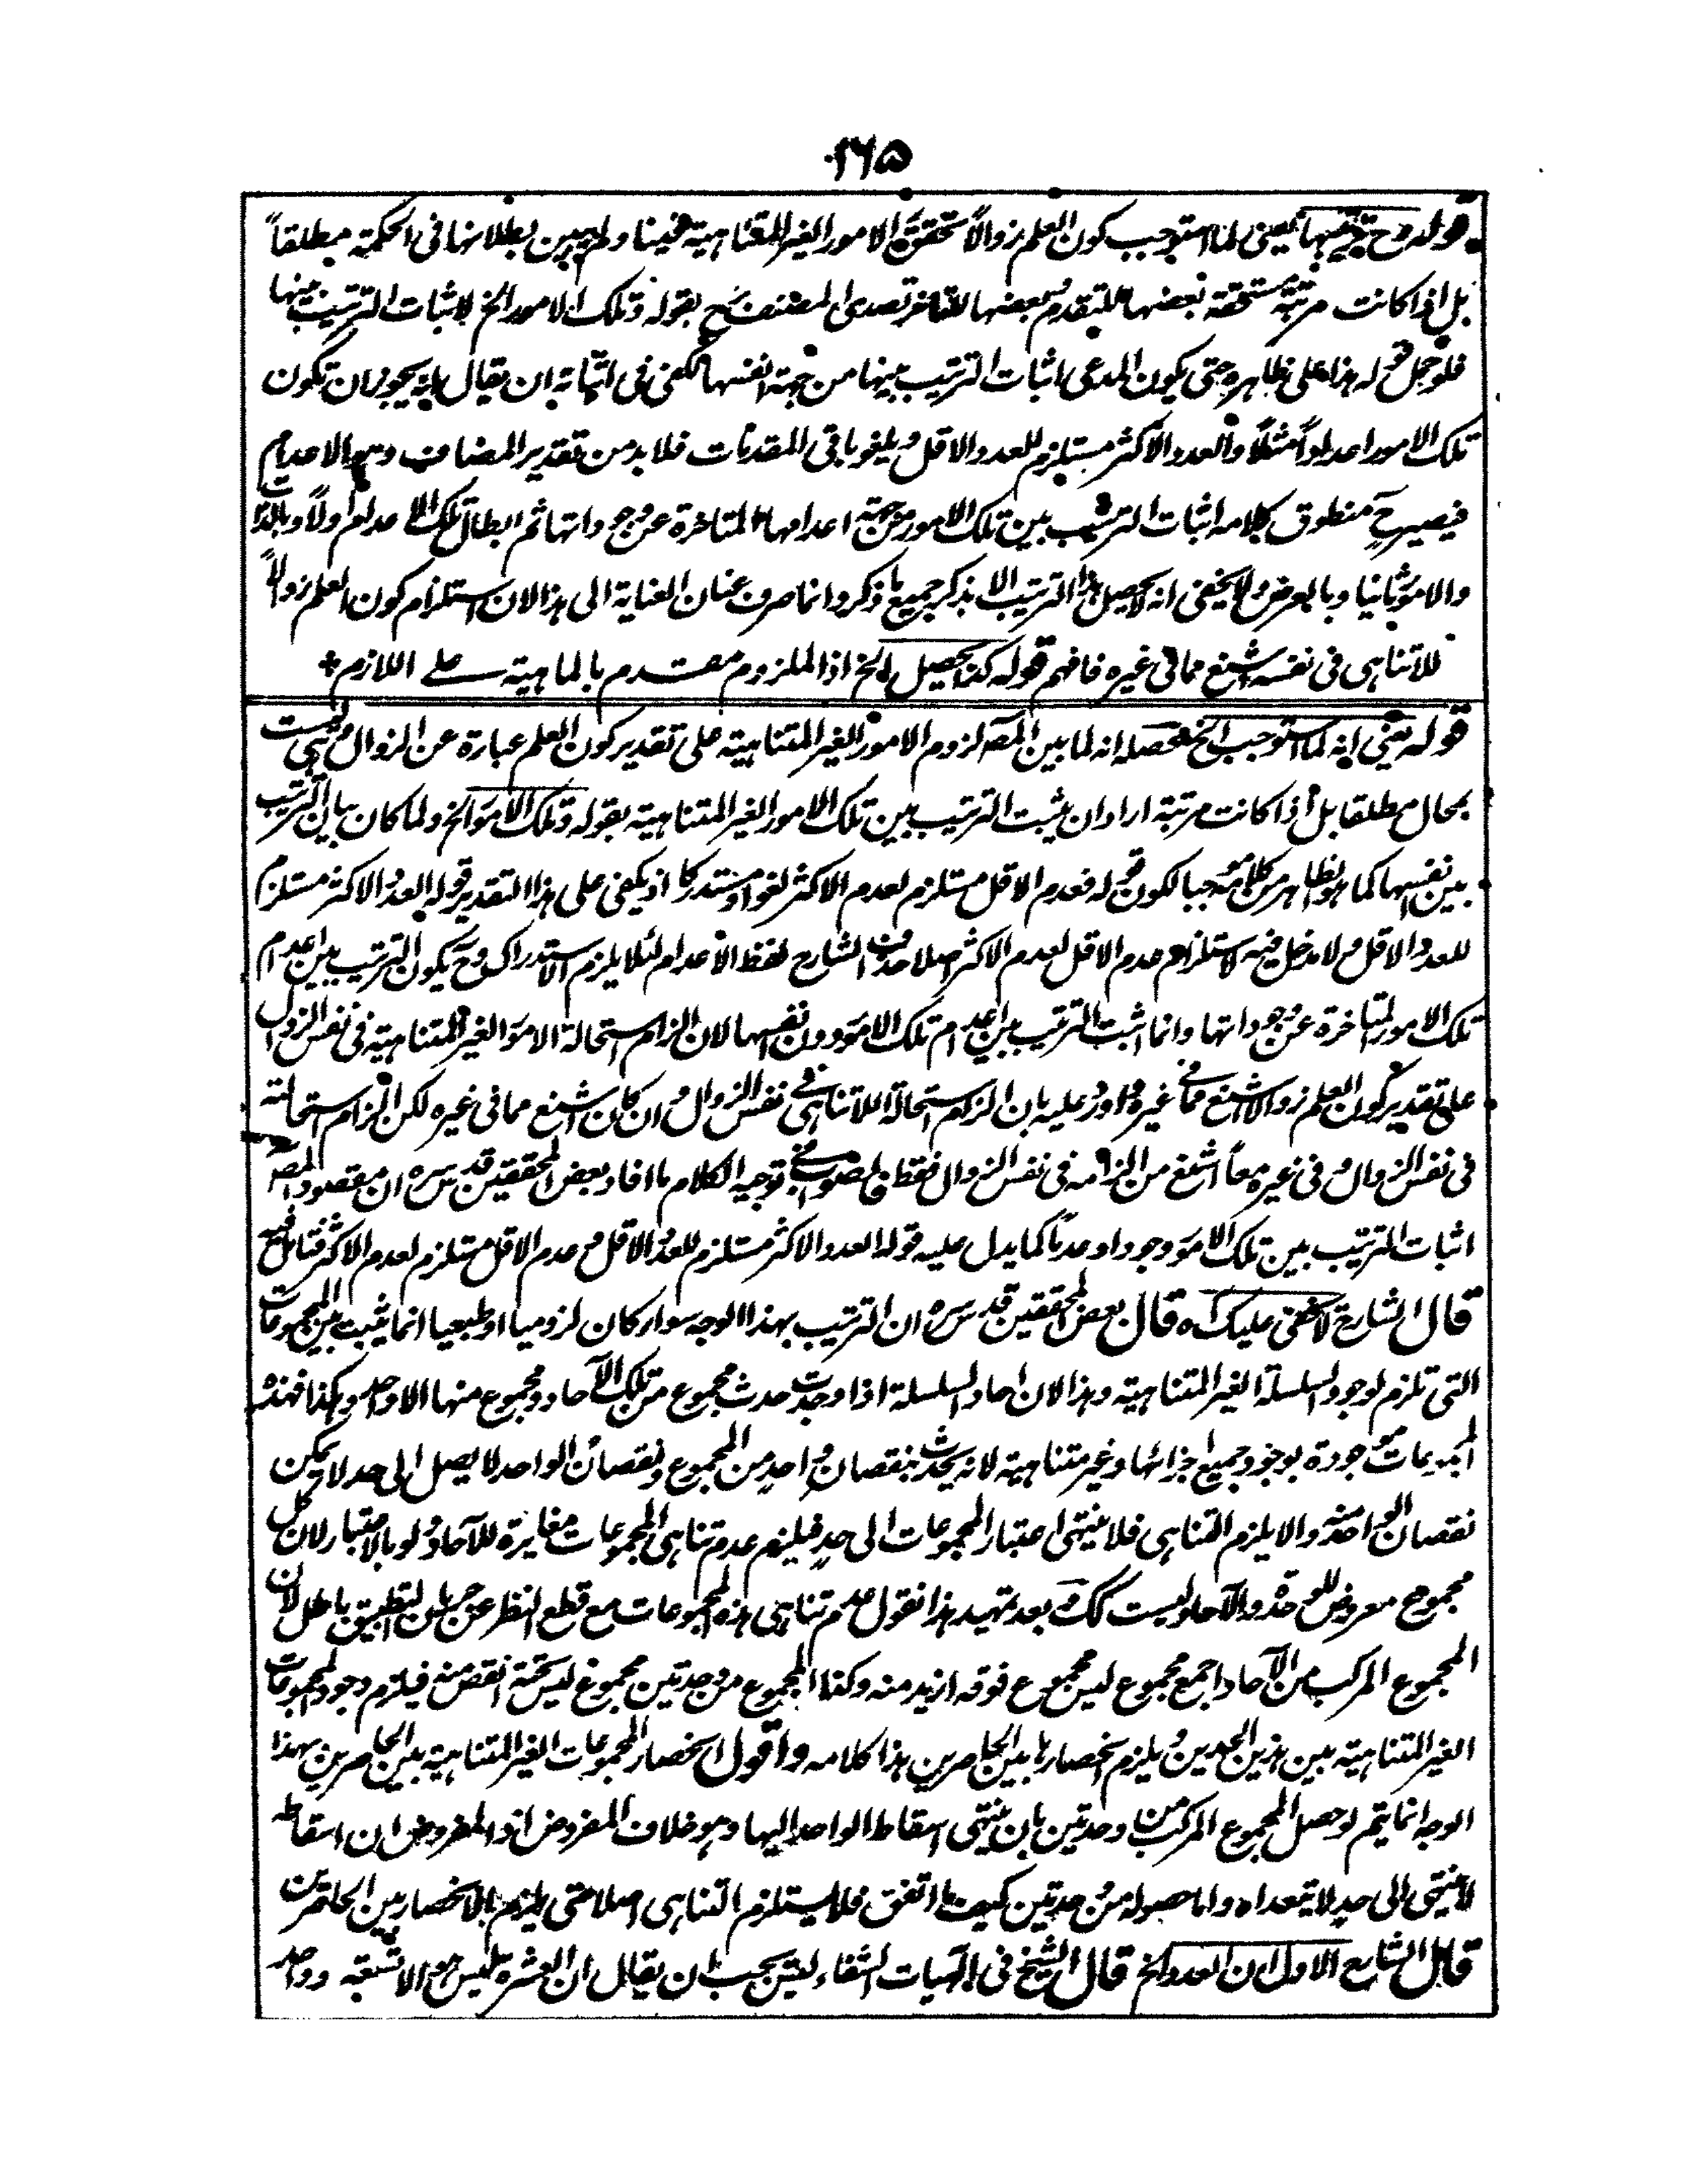 ١٦٥
قوله وح يعنى لما استوجب كون العلم زوالاً تحقق الامور الغير المتناهية فينا ولم يبين بطلانها فى الحكمة مطلقاً
بل اذا كانت مرتبة متحققة بعضها متقدم بعضها متاخر تصدى المصنف رح بقوله وتلك الامور الخ لاثبات الترتيب بينها
فلو حمل قوله هذا على ظاهره حتى يكون المدعى اثبات الترتيب بينها من جهة انفسها لكفى فى اثباته ان يقال بانه يجوز ان تكون
تلك الامور اعداداً مثلاً والعدد الاكثر مستلزم للعدد الاقل ويلغو باقى المقدمات فلا بد من تقدير المضاف وهو الاعدام
فيصير ح منطوق كلامه اثبات الترتيب بين تلك الامور من جهة اعدامها المتاخرة عن وجوداتها ثم ابطال تلك الاعدام اولاً وبالذات
والامور ثانيا وبالعرض ولا يخفى انه لا يحصل هذا الترتيب الا بذكر جميع ما ذكر وانما صرف عنان العناية الى هذا لان استلزام كون العلم زوالاً
للاتناهى فى نفسه اشنع مما فى غيره فافهم قوله كذا يحصل الخ اذ الملزوم متقدم بالماهية على اللازم +
قوله يعنى انه لما استوجب الخ محصله انه لما بين المصـ لزوم الامور الغير المتناهية على تقدير كون العلم عبارة عن الزوال وهى ليست
بمحال مطلقا بل اذا كانت مرتبة اراد ان يثبت الترتيب بين تلك الامور الغير المتناهية بقوله وتلك الامور الخ ولما كان بيان الترتيب
بين نفسها كما هو الظاهر من كلامه موجبا لكون قوله فعدم الاقل مستلزم لعدم الاكثر لغوا ومستدركا اذ يكفى على هذا التقدير قوله العدد الاكثر مستلزم
للعدد الاقل ولا مدخل فيه لاستلزام عدم الاقل لعدم الاكثر اصلا حذف الشارح لفظ الاعدام لئلا يلزم الاستدراك وح يكون الترتيب بين اعدام
تلك الامور المتاخرة عن وجوداتها وانما اثبت الترتيب بين اعدام تلك الامور دون نفسها لان الزام استحالة الامور الغير المتناهية فى نفس الزوال
على تقدير كون العلم زوالا اشنع مما فى غيره واورد عليه بان الزام استحالة اللاتناهى فى نفس الزوال وان كان اشنع مما فى غيره لكن الزام استحالته
فى نفس الزوال وفى غيره معاً اشنع من الزامه فى نفس الزوال فقط فالصواب فى توجيه الكلام ما افاد بعض المحققين قدس سره ان مقصود المصـ
اثبات الترتيب بين تلك الامور وجودا وعدما كما يدل عليه قوله العدد الاكثر مستلزم للعدد الاقل وعدم الاقل مستلزم لعدم الاكثر فتامل فيه
قال الشارح لا يخفى عليك اه قال بعض المحققين قدس سره ان الترتيب بهذا الوجه سواء كان لزوميا او طبعيا انما يثبت بين المجموعات
التى تلزم لوجود السلسلة الغير المتناهية وهذا لان احاد السلسلة اذا وجدت حدث مجموع من تلك الآحاد ومجموع منها الا واحد وهكذا فهذه
المجموعات موجودة بوجود جميع اجزائها وغير متناهية لانه يحدث بنقصان واحد من المجموع ونقصان الواحد لا يصل الى حد لا يمكن
نقصان الواحد منه والا يلزم التناهى فلا ينتهى اعتبار المجموعات الى حد فيلزم عدم تناهى المجموعات مغايرة للآحاد ولو بالاعتبار لان كل
مجموع معروض للوحدة والآحاد ليست كك وبعد تمهيد هذا نقول عدم تناهى هذه المجموعات مع قطع النظر عن جريان التطبيق باطل لان
المجموع المركب من الآحاد اجمع مجموع ليس مجموع فوقه ازيد منه وكذا المجموع من وحدتين مجموع ليس تحته انقص منه فيلزم وجود المجموعات
الغير المتناهية بين هذين الحدين ويلزم انحصارها بين الحاصرين هذا كلامه واقول انحصار المجموعات الغير المتناهية بين الحاصرين بهذا
الوجه انما يتم لو حصل المجموع المركب من وحدتين بان ينتهى اسقاط الواحد اليها وهو خلاف المفروض اذ المفروض ان اسقاطه
لا ينتهى الى حد لا يتعداه واما حصوله من وحدتين كيف ما اتفق فلا يستلزم التناهى اصلا حتى يلزم الانحصار بين الحاصرين
قال الشارح الاول ان العدد الخ قال الشيخ فى الهيات الشفاء ليس يجب ان يقال ان العشرة ليس هو الا تسعة وواحد